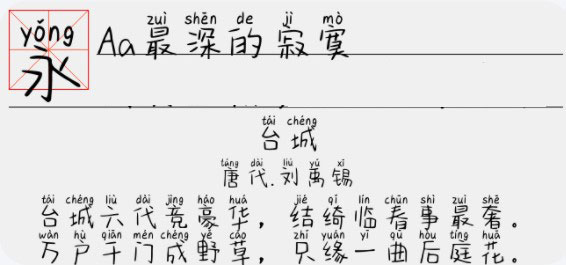 yǒng
永
zuì shēn de jì mò
Aa最深的寂寞
tái chéng
台城
táng dài liú yǔ xī
唐代.刘禹锡
tái chéng liù dài jìng háo huá jié qǐ lín chūn shì zuì shē
台城六代竞豪华，结绮临春事最奢。
wàn hù qiān mén chéng yě cǎo zhǐ yuán yī qǔ hòu tíng huā
万户千门成野草，只缘一曲后庭花。